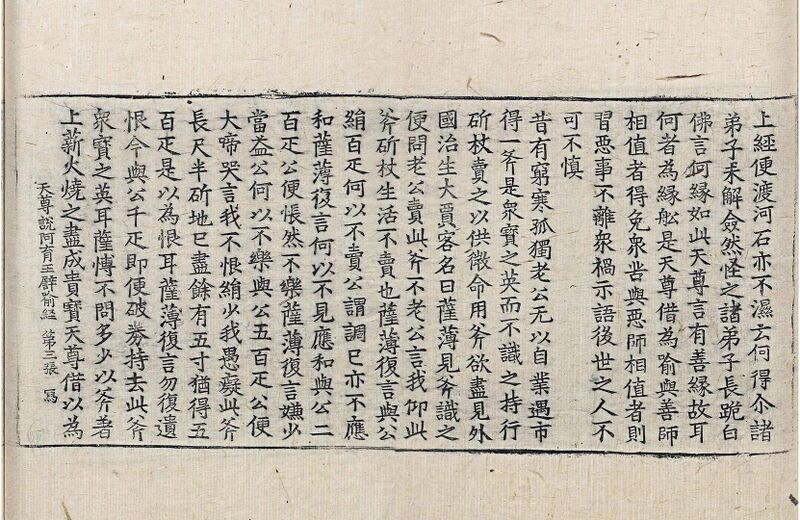 上經便渡河石亦不濕云何得尒諸
弟子未解僉然怪之諸弟子長跪白
佛言何緣如此天尊言有善緣故耳
何者為緣舩是天尊借為喻與善師
相值者得免衆苦與惡師相值者則
習惡事不離衆禍示語後世之人不
可不慎
昔有窮寒孤獨老公无以自業遇市
得一斧是衆寶之英而不識之持行
斫杖賣之以供微命用斧欲盡見外
國治生大賈客名曰薩薄見斧識之
便問老公賣此斧不老公言我仰此
斧斫杖生活不賣也薩薄復言與公
絹百疋何以不賣公謂調巳亦不應
和薩薄復言何以不見應和與公二
百疋公便悵然不樂薩薄復言嫌少
當益公何以不樂與公五百疋公便
大啼哭言我不恨絹少我愚癡此斧
長尺半斫地巳盡餘有五寸猶得五
百疋是以為恨耳薩薄復言勿復遺
恨今與公千疋即便破券持去此斧
衆寶之英耳薩慱不問多少以斧著
上薪火燒之盡成貴寶天尊借以為
天尊說阿育王譬喻經 第三張 寫